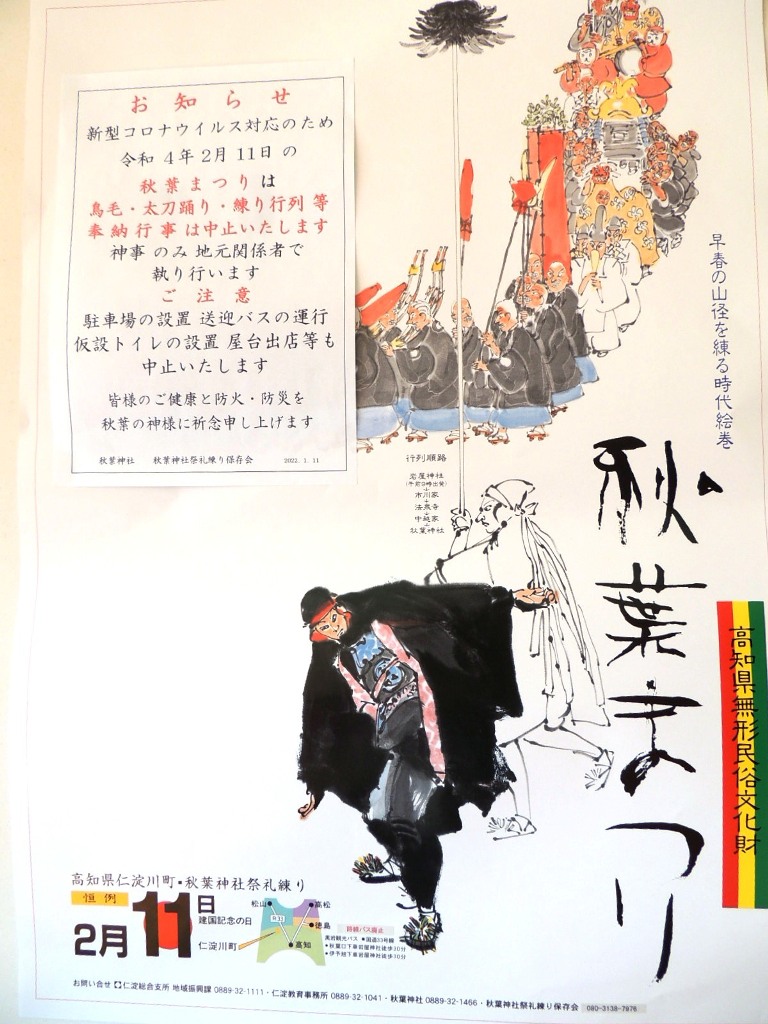 お知らせ
新型コロナウイルス対応のため
令和 4年 2月 11日 の
秋葉まつり は
鳥毛・太刀踊り・練り行列 等
奉納行事 は中止いたします
神事 のみ 地元関係者で
執り行います
ご注意
駐車場の設置 送迎バスの運行
仮設トイレの設置 屋台出店等も
中止いたします
皆様のご健康と防火・防災を
秋葉の神様に祈念申し上げます
秋葉神社 秋葉神社祭礼練り保存会 2022. 1. 11
早春の山径を練る時代絵巻
秋葉まつり
高知県無形民俗文化財
行列順路
岩屋神社
(午前9時出発)
↓
市川家
↓
法泉寺
↓
中越家
↓
秋葉神社
高知県仁淀川町・秋葉神社祭礼練り
恒例
2月11日
建国記念の日
仁淀川町
松山
高松
徳島
高知
R33
路線バス廃止
黒岩観光バス ●国道33号線
●秋葉口下車岩屋神社徒歩30分
お問い合せ 仁淀総合支所 地域振興課 0889-32-1111・仁淀教育事務所 0889-32-1041・秋葉神社 0889-32-1466・秋葉神社祭礼練り保存会 080-3138-7876